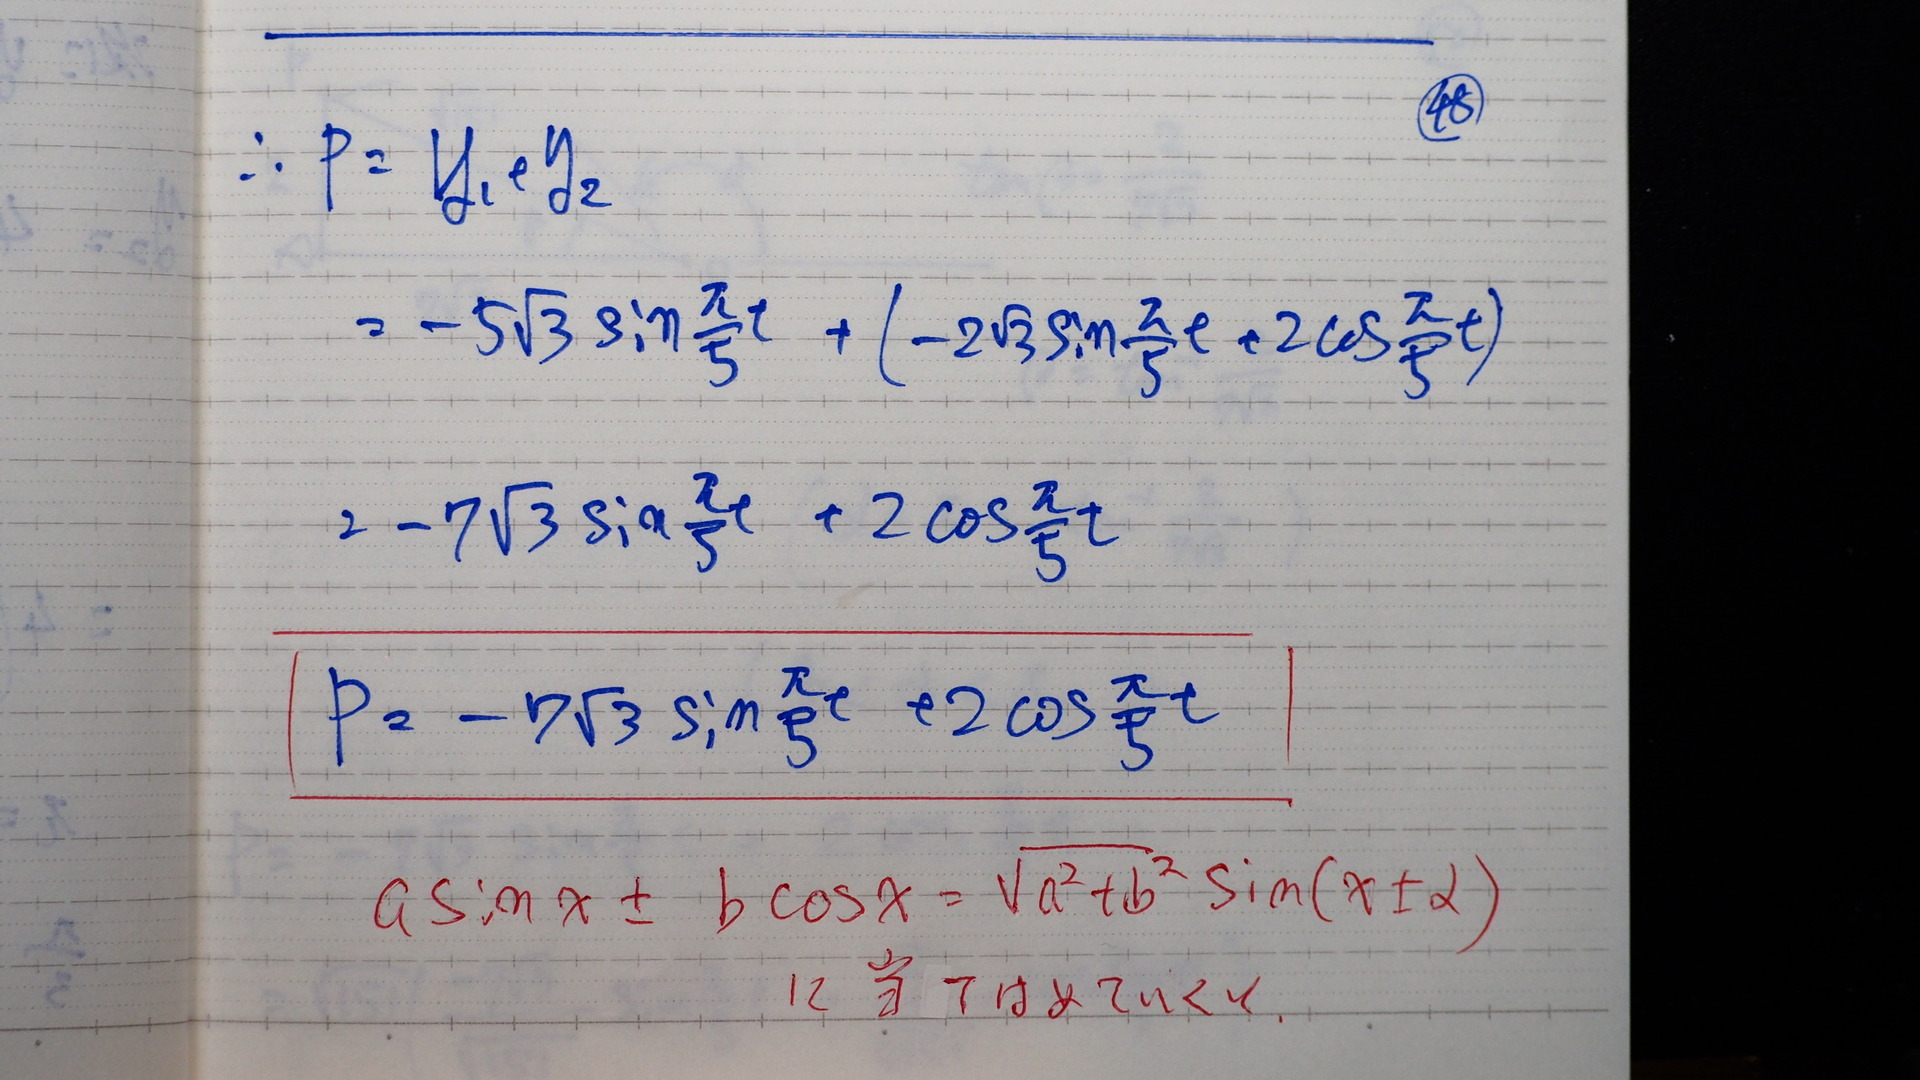 48
∴ P = y₁ + y₂
= -5√3 sin π/5 t + (-2√3 sin π/5 t + 2 cos π/5 t)
= -7√3 sin π/5 t + 2 cos π/5 t
P = -7√3 sin π/5 t + 2 cos π/5 t
a sin x ± b cos x = √a²+b² sin(x ± α)
に当てはめていくと.